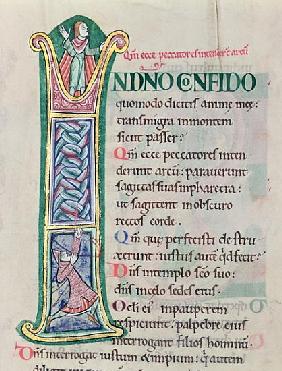 Qm̄ ecce peccatores intender̄ arcū
INDNO CONFIDO
quomodo dicitis anime mee:
transmigra inmontem
sicut passer.
Qm̄ ecce peccatores inten
derunt arcū: parauerunt
sagittas suas inpharetra:
ut sagittent inobscuro
rectos corde.
Qm̄ que perfecisti destru
xerunt: iustus autē quid fecit?
Dn̄s intemplo scō suo:
dn̄s sedes eius.
Oculi eius inpauperem
respiciunt: palpebre eius
interrogant filios hominū.
Dn̄s interrogat iustum &impium: qui autem